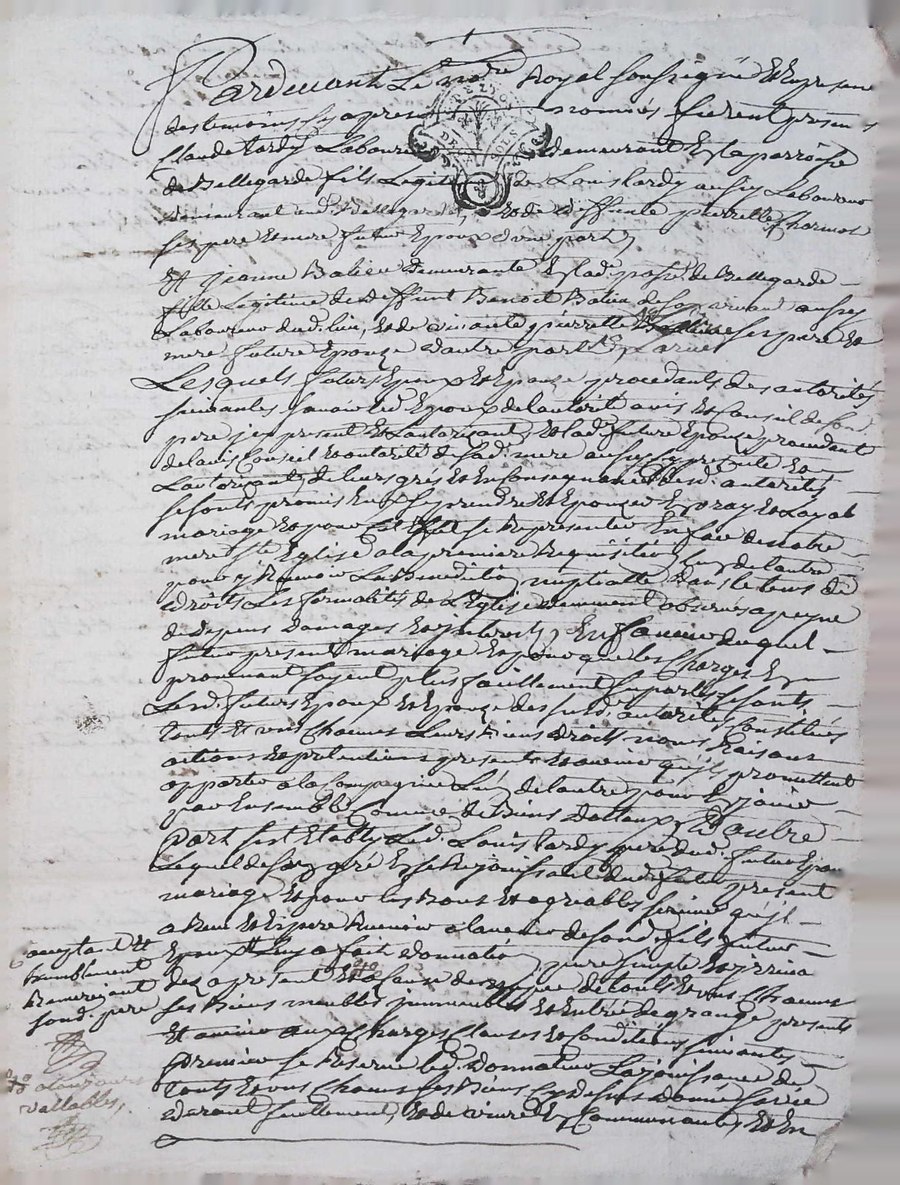 Pardevant Le no.re Royal soussigné Et En presence
des temoins cy apres nommés furent presens
DE LYON
DIX SOLS
Claude tardy Laboureur demeurant En la parroisse
de Bellegarde fils Legitime de Louis tardy aussy Laboureur
demeurant aud. Bellegarde, Et de deffunte pierrette Charmet
ses pere Et mere futur Epoux d'une part,
Et Jeanne Balieu demeurante En lad. parse. de Bellegarde
fille Legitime de deffunt Benoit Balieu de son vivant aussy
Laboureur dud. lieu, Et de vivante pierrette ses pere Et
mere future Epouze d'autre part
Lesquels futurs Epoux Et Epouze procedants des autorités
suivantes scavoir led. Epoux de l'autorité avis Et Conseil de sond.
pere icy present Et L'autorizant, Et lad. future Epouze procedant
de l'avis Conseil Et autorité de sad. mere aussy cy presente Et
L'autorizant, de leurs grés Et En Consequance desd. autorités
se sont promis Eux prendre Et Epouzer En vray Et Loyal
mariage Et pour Cet Effet se Representer En face de notre
mere ste Eglise a la premiere Requisition L'un de L'autre
pour y Recevoir La Benediction nuptialle dans le tems de
droits Les formalités de L'Eglise deument observées a peyne
de depens domages Et interests, En faveur duquel
futur present mariage Et pour que les Charges En
provenant soyent plus facillement supportées se sont
Lesd. futurs Epoux Et Epouze desd. autorités Constitués
touts Et uns Chacuns Leurs Biens droits noms Raisons
actions Et pretentions presents Et avenir qu'ils promettent
apporter a la Compagnie L'un de L'autre pour En jouir
par Ensemble Comme de Biens dotaux, D'autre
Part s'est Etably Led. Louis tardy pere dud. futur Epoux
Lequel de son gré En se Rejouissant dud. futur present
mariage Et pour les Bons Et agreables services qu'il
a Reçu Et Espere Recevoir a l'avenir de sond. fils futur
Epoux Luy a fait donnation pure simple Et irrevoca
des a present Et a Cause de nopces de touts Et uns Chacuns
ses Biens meubles immeubles Et presents
Et avenir aux Charges Clauses Et Conditions suivantes
Premier se Reserve led. Donnateur La jouissance de
touts Et uns Chacuns ses Biens Cy dessus Donné sa vie
durant seullement, Et de vivre En Communauté, Et En
acceptant Et
humblement
Remerciant
sond. pere
vallables,